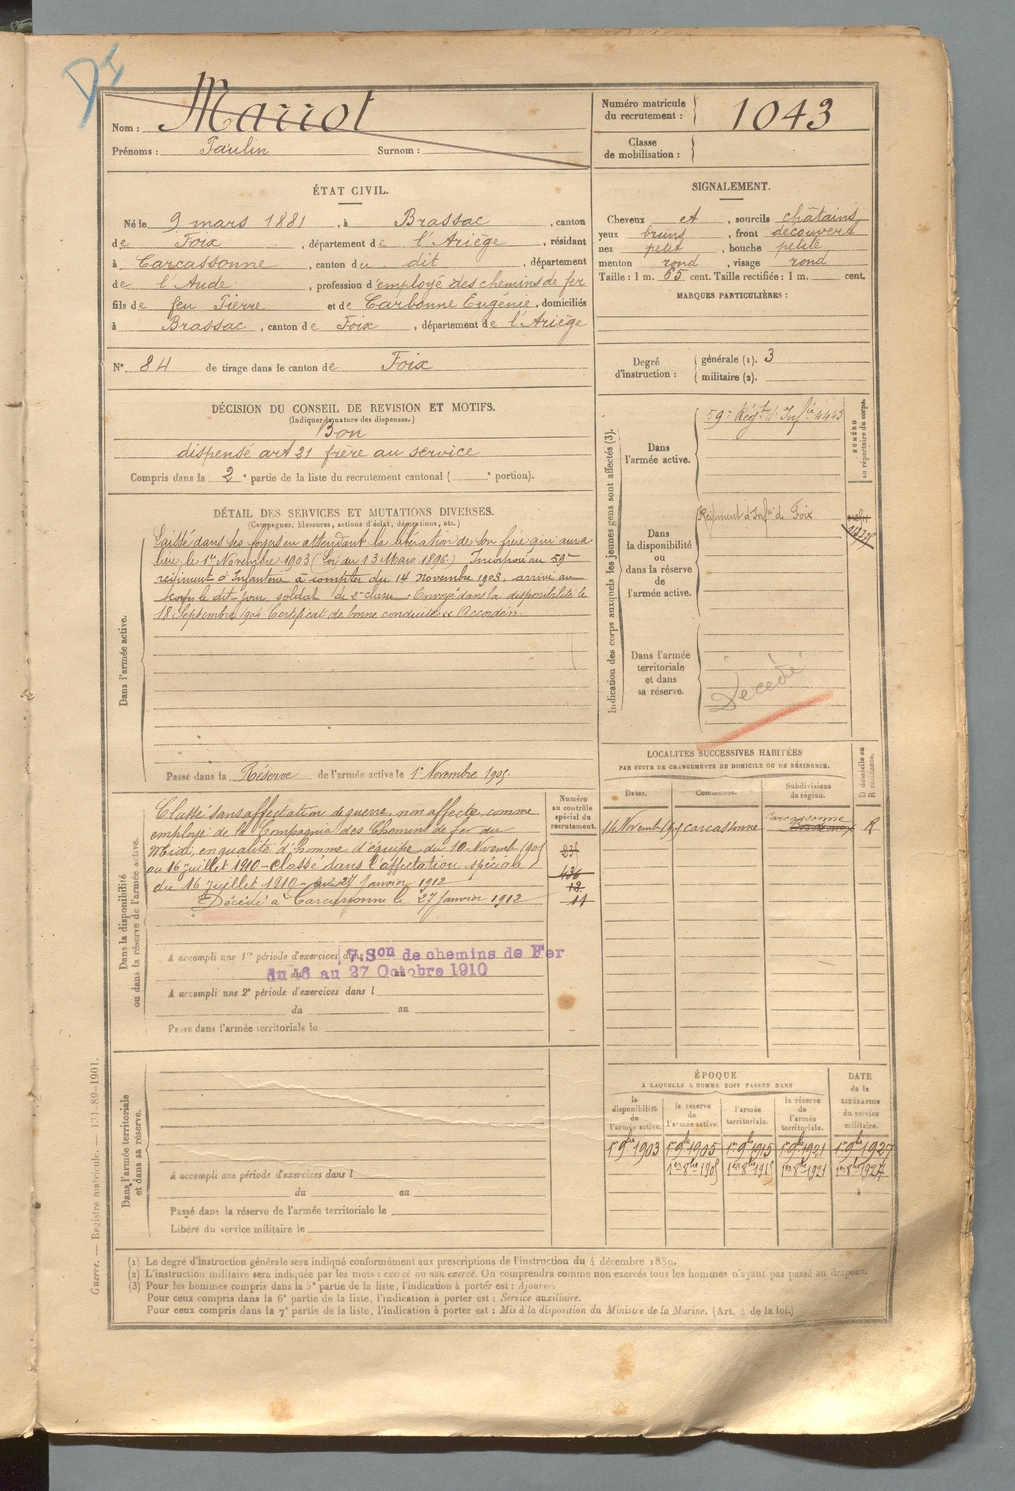 Nom : Marrot
Prénoms : Paulin Surnom :
Numéro matricule du recrutement : 1043
Classe de mobilisation :
ÉTAT CIVIL.
Né le 9 mars 1881, à Brassac, canton
de Foix, département de l'Ariège, résidant
à Carcassonne, canton du dit, département
de l'Aude, profession d'employé des chemins de fer
fils de feu Pierre et de Carbonne Eugénie, domiciliés
à Brassac, canton de Foix, département de l'Ariège
N° 84 de tirage dans le canton de Foix
SIGNALEMENT.
Cheveux et, sourcils châtains
yeux bruns, front découvert
nez petit, bouche petite
menton rond, visage rond
Taille : 1 m. 65 cent. Taille rectifiée : 1 m. cent.
MARQUES PARTICULIÈRES :
Degré d'instruction : générale (1). 3
militaire (2).
DÉCISION DU CONSEIL DE REVISION ET MOTIFS.
(Indiquer la nature des dispenses.)
Bon
dispensé art 21 frère au service
Compris dans la 2e partie de la liste du recrutement cantonal ( e portion).
DÉTAIL DES SERVICES ET MUTATIONS DIVERSES.
(Campagnes, blessures, actions d'éclat, décorations, etc.)
Dans l'armée active.
Laissé dans ses foyers en attendant la libération de son frère qui aura
lieu le 1er Novembre 1903 (Loi du 13 Mars 1896) Incorporé au 59e
régiment d'Infanterie à compter du 14 Novembre 1903, arrivé au
corps le dit jour soldat de 2e classe. Envoyé dans la disponibilité le
18 Septembre 1904 Certificat de bonne conduite "Accordé".
Passé dans la Réserve de l'armée active le 1er Novembre 1905
Indication des corps auxquels les jeunes gens sont affectés (3).
NUMÉRO au répertoire du corps.
Dans l'armée active.
59e Régt d'Infie 4443
Dans la disponibilité ou dans la réserve de l'armée active.
Régiment d'Infie de Foix
Dans l'armée territoriale et dans sa réserve.
Décédé
LOCALITÉS SUCCESSIVES HABITÉES
PAR SUITE DE CHANGEMENTS DE DOMICILE OU DE RÉSIDENCE.
Dates. Communes. Subdivisions de région. D domicile ou R résidence.
14 Novembre 1905 Carcassonne Carcassonne Bordeaux R
Dans la disponibilité ou dans la réserve de l'armée active.
Numéro au contrôle spécial du recrutement.
Classé sans affectation de guerre, non affecté, comme
employé de la Compagnie des Chemins de fer du
Midi, en qualité d'homme d'équipe, du 10 Novembre 1905
au 16 juillet 1910 - Classé dans l'affectation spéciale
du 16 juillet 1910 - au 27 Janvier 1912
Décédé à Carcassonne le 27 Janvier 1912
436
12
11
A accompli une 1re période d'exercices dans 7. Son de chemins de Fer
du 6 au 27 Octobre 1910
A accompli une 2e période d'exercices dans l
du au
Passé dans l'armée territoriale le
Dans l'armée territoriale et dans sa réserve.
A accompli une période d'exercices dans l
du au
Passé dans la réserve de l'armée territoriale le
Libéré du service militaire le
ÉPOQUE
A LAQUELLE L'HOMME DOIT PASSER DANS
la disponibilité de l'armée active. la réserve de l'armée active. l'armée territoriale. la réserve de l'armée territoriale. DATE de la LIBÉRATION du service militaire.
1er 9bre 1903 1er 9bre 1905 1er 9bre 1915 1er 9bre 1921 1er 9bre 1927
1er 8bre 1905 1er 8bre 1915 1er 8bre 1921 1er 8bre 1927
(1) Le degré d'instruction générale sera indiqué conformément aux prescriptions de l'instruction du 4 décembre 1889.
(2) L'instruction militaire sera indiquée par les mots : exercé ou non exercé. On comprendra comme non exercés tous les hommes n'ayant pas passé au drapeau.
(3) Pour les hommes compris dans la 5e partie de la liste, l'indication à porter est : Ajourné
Pour ceux compris dans la 6e partie de la liste, l'indication à porter est : Service auxiliaire.
Pour ceux compris dans la 7e partie de la liste, l'indication à porter est : Mis à la disposition du Ministre de la Marine. (Art. 4 de la loi.)
Guerre. — Registre matricule. — 131-89-1901.